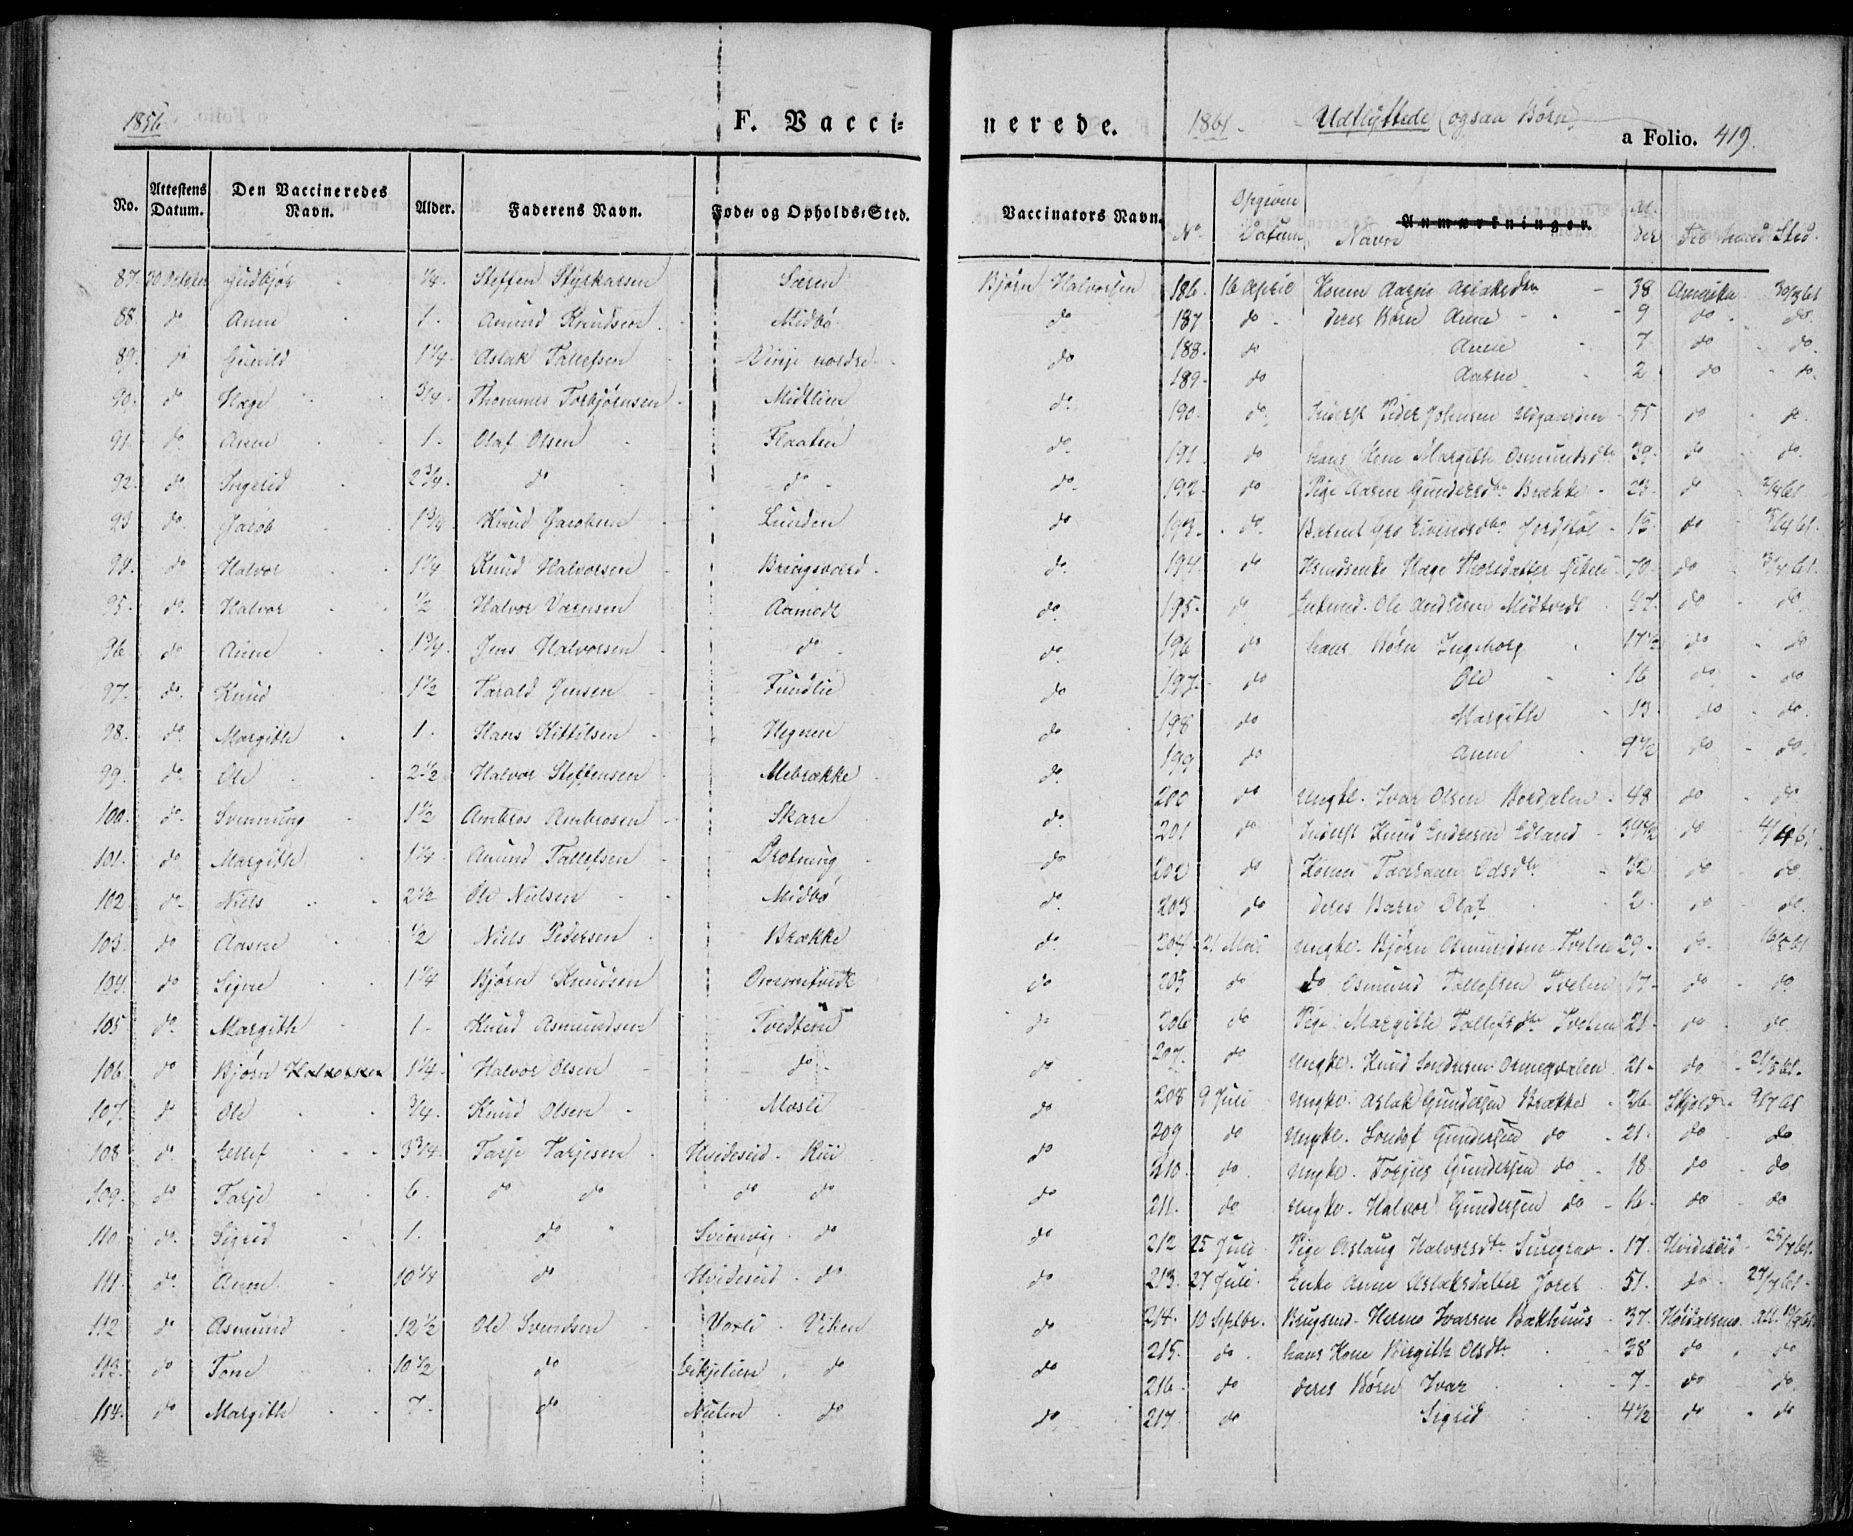 1856. F. Vaccinerede. 1861. Udflyttede (ogsaa Børn) a Folio. 419.
No. Attestens Datum. Den Vaccineredes Navn. Alder. Faderens Navn. Føde- og Opholds-Sted. Vaccinators Navn. No. Opgiven Datum Navn Anmærkninger. Alder Til hvad Sted.
87. 20 October Gudbjør 1/4. Steffen Styrkarsen Særen Bjørn Halvorsen
88. do Anne 1. Amund Knudsen Midbø do
89. do Gunild 1 1/4. Aslak Tallefsen Vinje nordre do
90. do Hæge 3/4. Thommes Torbjørnsen Midtlien do
91. do Anne 1. Olaf Olsen Flaaten do
92. do Ingerid 2 3/4. do do do
93. do Jacob 1 3/4. Knud Jacobsen Lunden do
94. do Halvor 1 1/4 Knud Halvorsen Bringsværd do
95. do Halvor 1/2 Halvor Aamodt do
96 do Anne 1 3/4. Jens Halvorsen do do
97. do Knud 1 1/2 Tarald Jensen Fundlie do
98. do Margith 1. Hans Kittilsen Hegnen do
99. do Ole 2 1/2 Halvor Steffensen Mebrække do
100. do Svennung 1 1/2 Ambros Ambrosen Skare do
101. do Margith 1 1/4. Amund Tallefsen Drotning do
102 do Niels 2 1/2 Ole Nielsen Midbø do
103. do Aasne 1/2 Niels Pedersen Brække do
104. do Signe 1 1/4 Bjørn Knudsen do
105 do Margith 1. Knud Asmundsen Tvedtene do
106. do Bjørn Halvorsen 1 1/4. Halvor Olsen do do
107. do Ole 3/4. Knud Olsen Mosli do
108 do Ellef 3 3/4. Tarje Tarjesen Hvideseid. Rui do
109. do Tarje 6. do do do do do
110 do Sigrid 1. do do do
111. do Anne 10 1/4 do Hvideseid do do
112 do Asmund 12 1/2 Ole Svendsen Vaxli Viken do
113. do Tone 10 1/2 do do do
114. do Margith 7 do Nuten do do
186. 16 April Konen Aasne Aslaksdtr 38 Amerika 30/3 61
187 do deres Børn Anne 9 do do
188. do Anne 7 do do
189. do Aasne 2 do do
190. do Inderst Peder Johnsen 55 do do
191 do hans Kone Margith Osmundsdtr 39. do do
192. do Pige Aasne Gundersdtr Brække 23. do 2/4 61.
193. do Barnet Gro Eivindsdtr 15 do 3/4 61.
194 do Huusenke Hæge Thorsdatter 70 do 3/4 61.
195. do Enkmd. Ole Andersen Midtvedt 47. do do
196 do hans Børn Ingeborg 17 1/2 do do
197. do Ole 16 do do
198 do Margith 13 do do
199 do Anne 9 1/2 do do
200 do Ungkl. Ivar Olsen Bordalen 48 do do
201 do Inderst Knud Endresen Edland 34 1/2 do 4/4 61.
202 do Konen Taaraan Olsdtr 32 do do
203 do deres Barn Olaf 2. do do
204. 21. Mai Ungkl. Bjørn Asmundsen Tveten 29. do 16/5 61
205 do do Osmund Tallefsen Tveten 17. do do
206 do Pige Margith Tallefsdtr Tveten 21. do do
207. do Ungkl. Knud Sondresen 21. do 21/5 61.
208 9 Juli Ungkl. Aslak Gundersen Brække 26. Skjold 9/7 61
209 do Ungkl. Sondof Gundersen do 21. do do
210. do Ungkl. Torjus Gundersen do 18 do do
211. do Ungkl. Halvor Gundersen do 16. do do
212 25 Juli Pige Aslaug Halvorsdtr 17. Hvideseid 25/7 61.
213. 27 Juli. Enke Anne Aslaksdatter Joret 51. do 27/7 61.
214. 10 Septbr. Brugsmd. Herms Ivarsen Bakhuus 37. Høidalsmo. Att. 10/9 61.
215. do hans Kone Birgith Olsdtr 38 do do
216. do deres Børn Ivar 7. do do
217 do Sigrid 4 1/2 do do